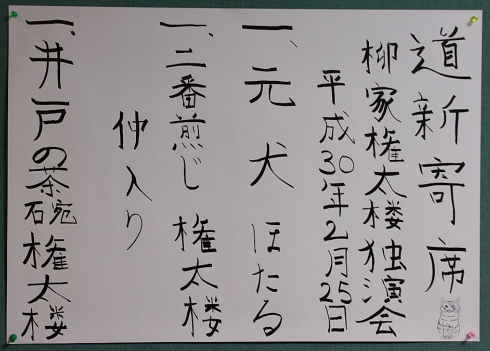 道新寄席
柳家権太楼独演会
平成30年2月25日
一、元犬 ほたる
一、二番煎じ 権太楼
仲入り
一、井戸の茶碗 権太楼